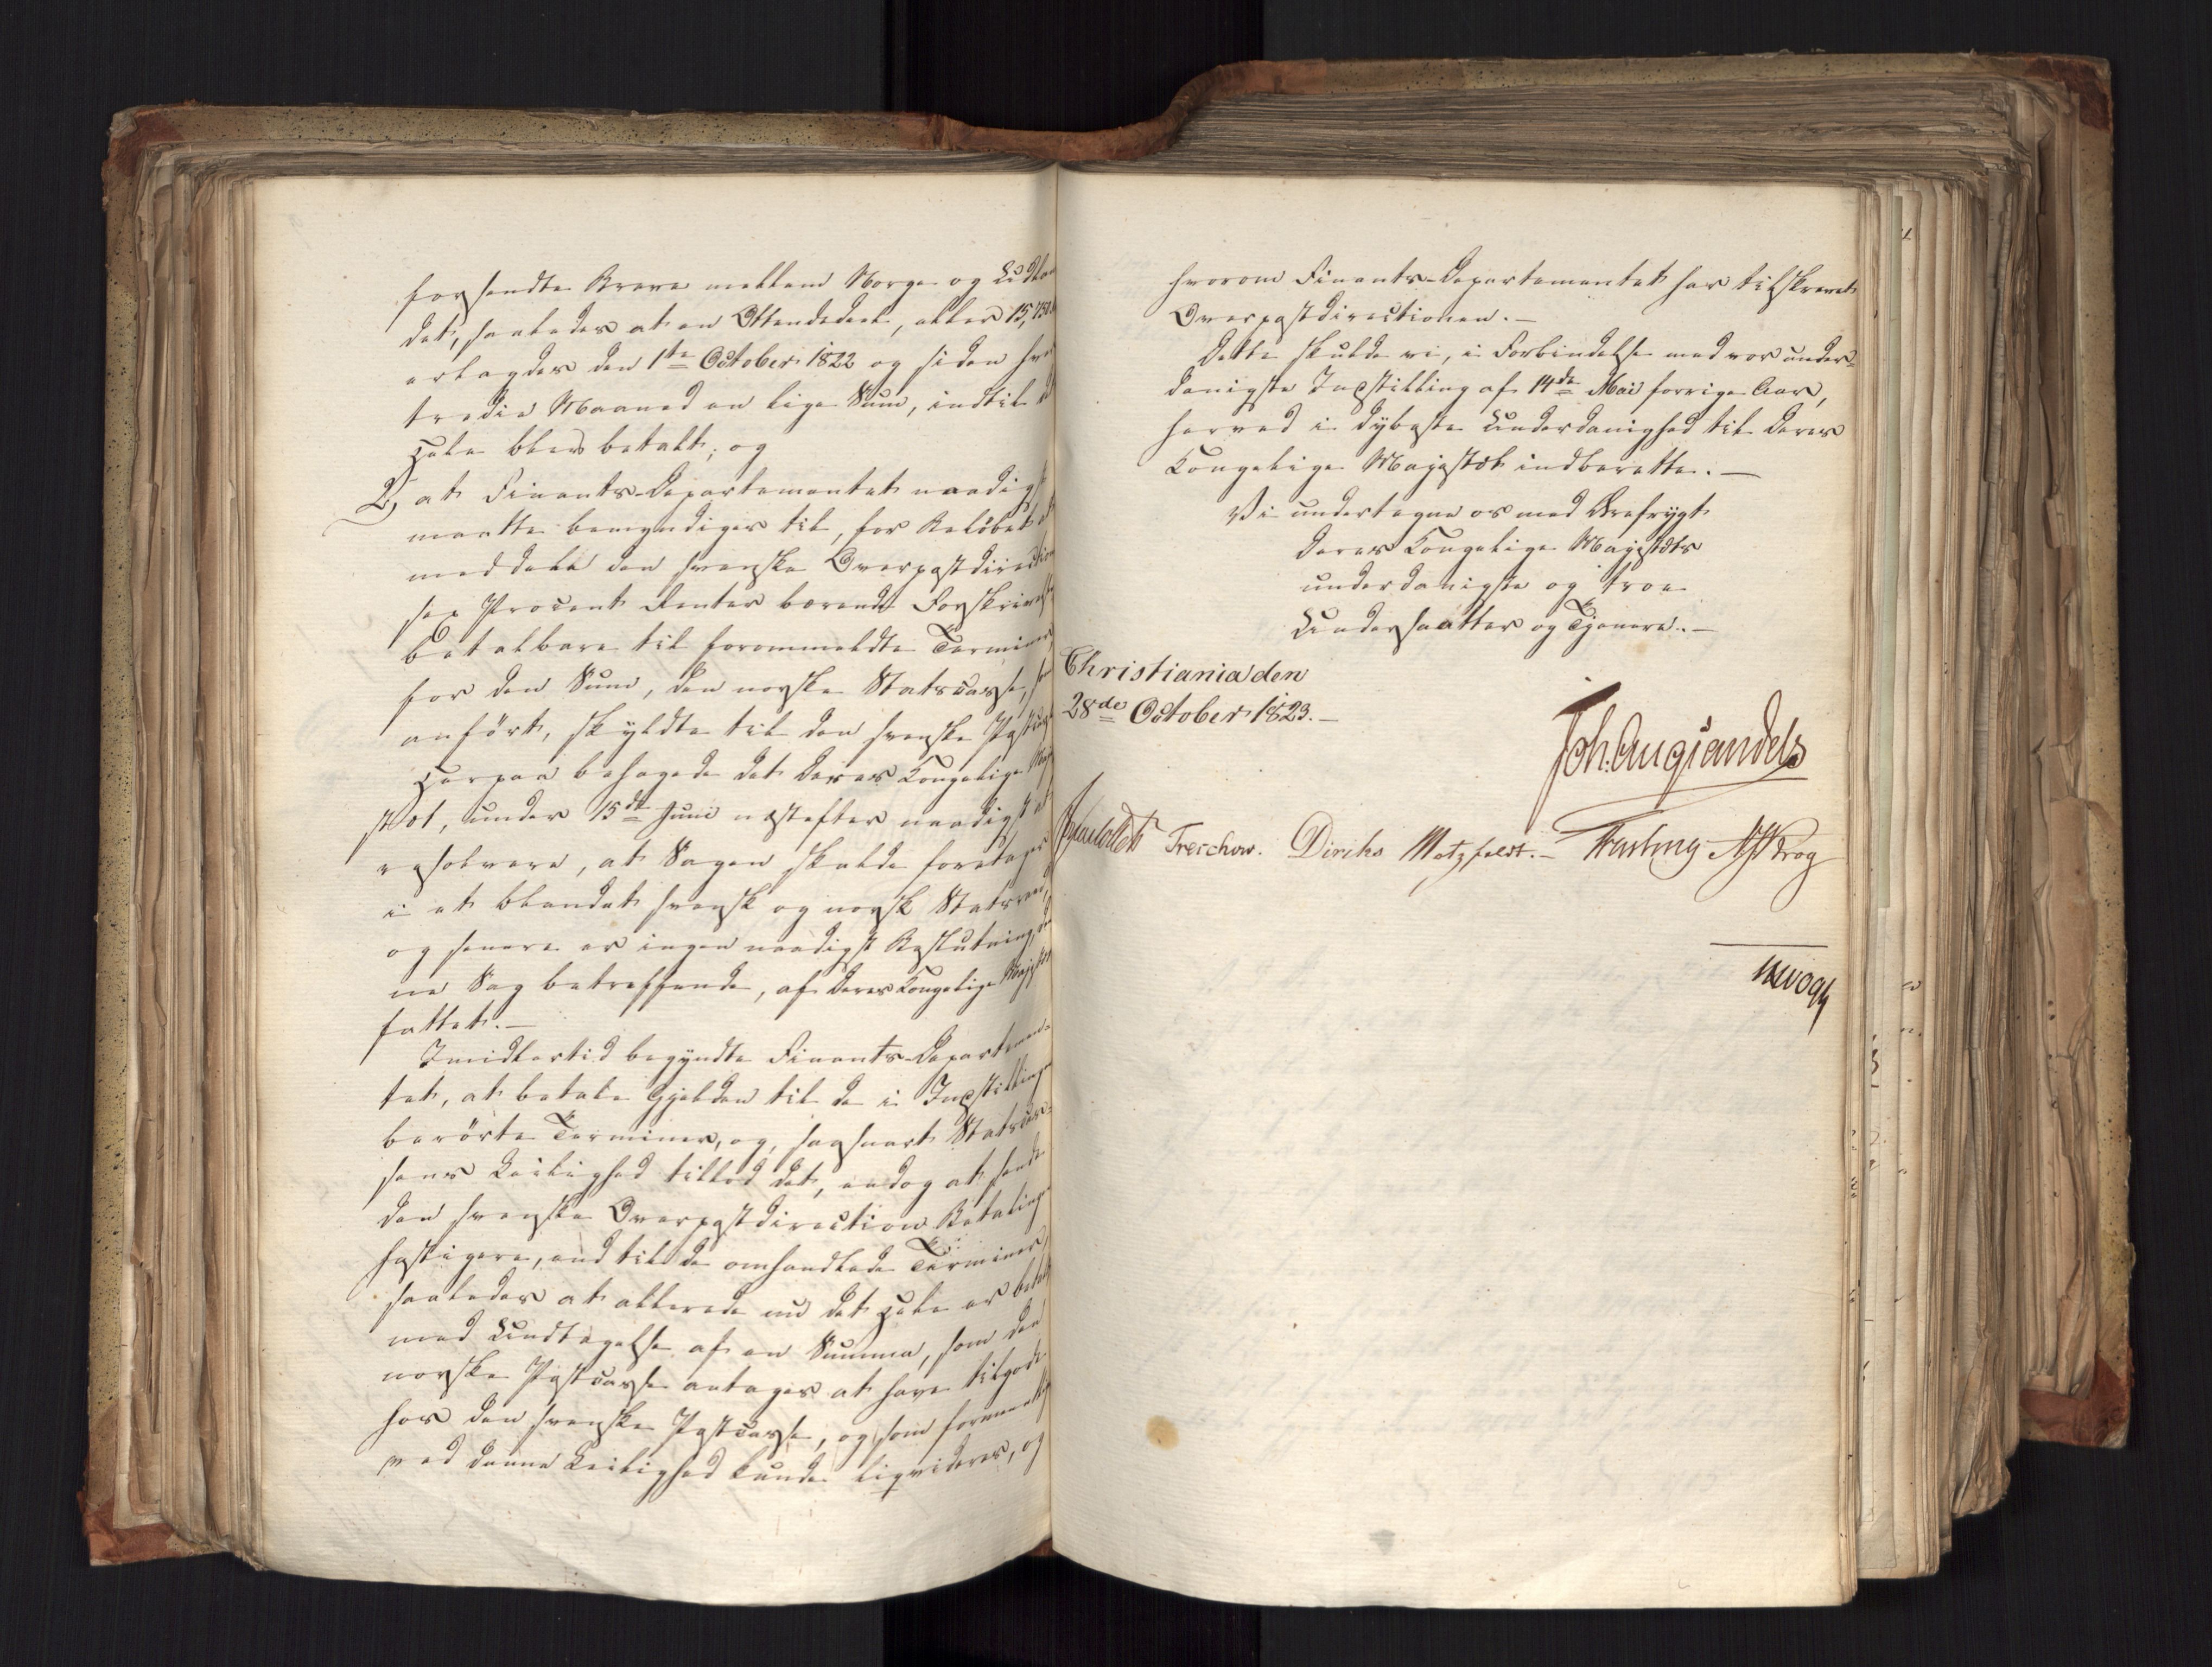 forsendte Breve mellem Norge og Udlan
det, saaledes at en Ottendedeel, eller 15,750
erlagdes den 1ste October 1822 og siden hver
tredie Maaned en lige Sum, indtil det
Hele blev betalt; og
2, at Finants-Departementet naadigst
maatte bemyndiges til, for Beløbet at
meddele den svenske Overpostdirection
sex Procent Renter bærende Forskrivelser
betalbare til forommeldte Terminer
for den Sum, den norske Statscasse, som
anført, skyldte til den svenske Postcasse
Herpaa behagede det Deres Kongelige Maje
stæt, under 15de Juni næstefter naadigst at
resolvere, at Sagen skulde foretages
i et blandet svensk og norsk Statsraad,
og senere er ingen naadigst Beslutning, den
ne Sag betreffende, af Deres Kongelige Majestæt
fattet.—
Imidlertid begyndte Finants-Departemen-
tet, at betale Gjelden til de i Indstillingen
berørte Terminer, og, saasnart Statscas-
sens Leilighed tillod det, endog at sende
den svenske Overpostdirection Betalingen
hastigere, end til de omhandlede Terminer,
saaledes at allerede nu det Hele er betalt
med Undtagelse af en Summa, som den
norske Postcasse antages at have tilgode
hos den svenske Postcasse, og som formeentlig
ved denne Leilighed kunde liqvideres, og
hvorom Finants-Departementet har tilskrevet
Overpostdirectionen.—
Dette skulde vi, i Forbindelse med vor under-
danigste Indstilling af 14de Mai forrige Aar,
herved i dybeste Underdanighed til Deres
Kongelige Majestæt indberette.—
Vi undertegne os med Ærefrygt
Deres Kongelige Majestæts
underdanigste og troe
Undersaatter og Tjenere.—
Christiania den
28de October 1823.—
Joh: Aug: Sandels
Treschow. Diriks Motzfeldt.— Fasting Krog
Vogt